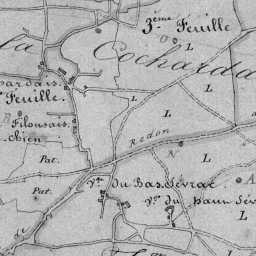 3.ème Feuille
Cocharda
L
L
Feuille.
Filousais
Chien
REDON
N
L
L
L
Pat.
Pat.
L
A
Vge. du Bas Sévrac
Vge. du Haut Sév
L
L